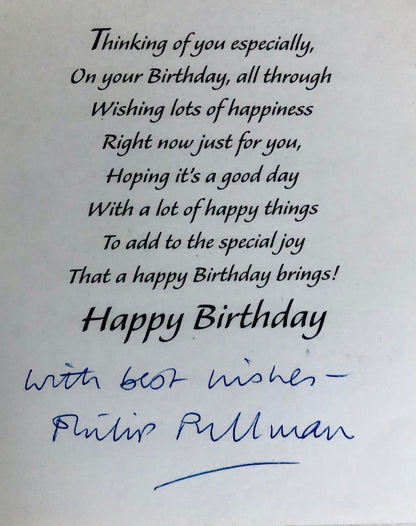 Thinking of you especially,
On your Birthday, all through
Wishing lots of happiness
Right now just for you,
Hoping it's a good day
With a lot of happy things
To add to the special joy
That a happy Birthday brings!
Happy Birthday
with best wishes –
Philip Pullman